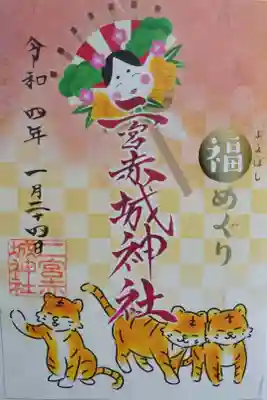 まえばし
福めぐり
二宮赤城神社
令和四年 一月二十四日
二宮赤
城神社